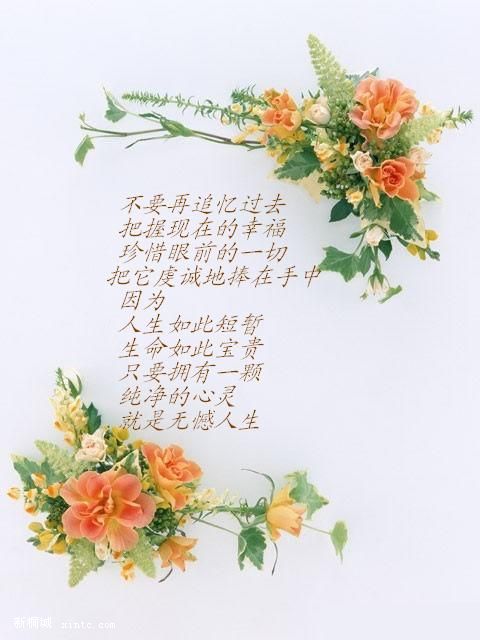 不要再追忆过去
把握现在的幸福
珍惜眼前的一切
把它虔诚地捧在手中
因为
人生如此短暂
生命如此宝贵
只要拥有一颗
纯净的心灵
就是无憾人生
新桐城 xintc.com